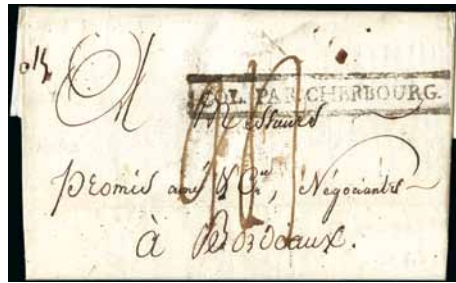 COL. PAR CHERBOURG.
Messieurs
Promis ainé & Cie, Négociants
à Bordeaux.